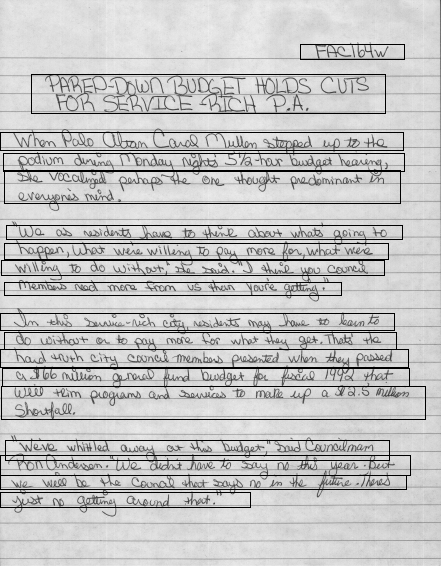 FAC164W
PARED-DOWN BUDGET HOLDS CUTS
FOR SERVICE-RICH P.A.
When Palo Altan Carol Mullen stepped up to the
podium during Monday nights' 3 1/2-hour budget hearing,
she vocalized perhaps the one thought predominant in
everyone's mind.
"We as residents have to think about what's going to
happen, what we're willing to pay more for, what we're
willing to do without," she said. "I think you council
members need more from us than you're getting."
In this service-rich city, residents may have to learn to
do without or to pay more for what they get. That's the
hard truth city council members presented when they passed
a $66 million general fund budget for fiscal 1992 that
will trim programs and services to make up a $2.5 million
shortfall.
"We've whittled away at this budget," said Councilman
Ron Anderson. "We didn't have to say no this year. But
we will be the Council that says no in the future. There's
just no getting around that."